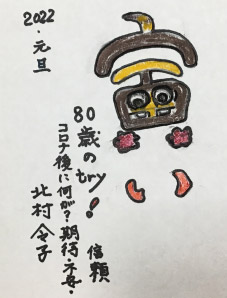 2022・元旦
80歳のtry!
コロナ後に何が?期待・不安・
信頼
北村令子